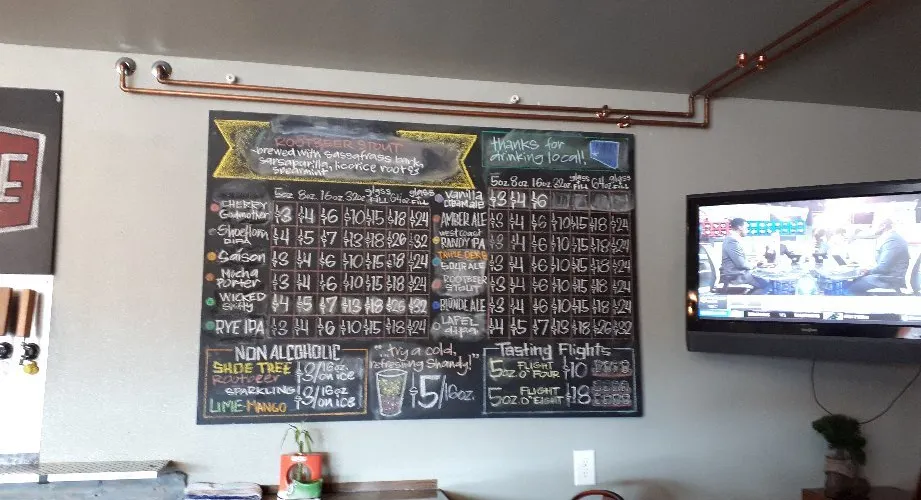 ROOTBEER STOUT
brewed with sassafrass bark,
sarsaparilla, licorice root &
spearmint
thanks for
drinking local!
5oz 8oz. 16oz 32oz glass FILL 64oz glass FILL
CHERRY Godmother $3 $4 $6 $10 $15 $18 $24
Shoehorn DIPA $4 $5 $7 $13 $18 $26 $32
Saison $3 $4 $6 $10 $15 $18 $24
Mocha Porter $3 $4 $6 $10 $15 $18 $24
WICKED $4 $5 $7 $13 $18 $26 $32
RYE IPA $3 $4 $6 $10 $15 $18 $24
5oz. 8oz. 16oz 32oz glass FILL 64oz glass FILL
Vanilla $3 $4 $6
AMBER ALE $3 $4 $6 $10 $15 $18 $24
WEST COAST RANDY PA $3 $4 $6 $10 $15 $18 $24
SOUR ALE $3 $4 $6 $10 $15 $18 $24
ROOTBEER STOUT $3 $4 $6 $10 $15 $18 $24
BLONDE ALE $3 $4 $6 $10 $15 $18 $24
LAPEL $4 $5 $7 $13 $18 $26 $32
NON ALCOHOLIC
SHOE TREE ROOTBEER $3/16oz. on ice
SPARKLING LIME-MANGO $3/16oz on ice
"..try a cold,
refreshing Shandy!"
$5/16oz.
Tasting Flights
5oz FLIGHT O' FOUR $10
5oz FLIGHT O' EIGHT $18
E